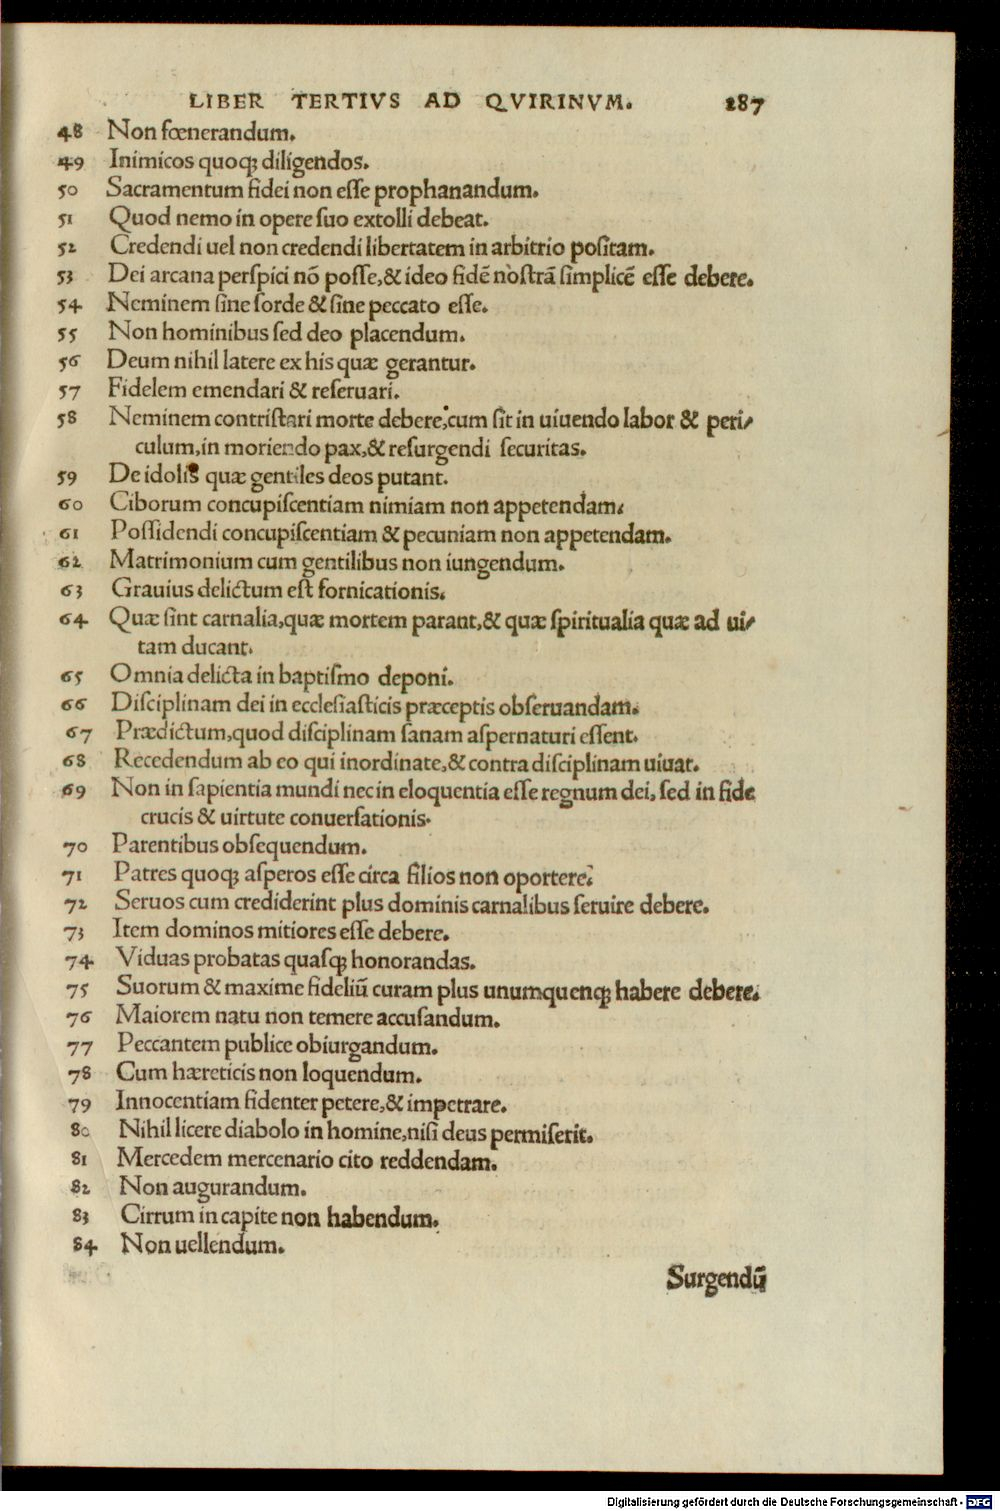 LIBER TERTIVS AD QVIRINVM. 287
48 Non fœnerandum.
49 Inimicos quoq; diligendos.
50 Sacramentum fidei non eſſe prophanandum.
51 Quod nemo in opere ſuo extolli debeat.
52 Credendi uel non credendi libertatem in arbitrio poſitam.
53 Dei arcana perſpici nõ poſſe,& ideo fidẽ noſtrã ſimplicẽ eſſe debere.
54 Neminem ſine ſorde & ſine peccato eſſe.
55 Non hominibus ſed deo placendum.
56 Deum nihil latere ex his quæ gerantur.
57 Fidelem emendari & reſeruari.
58 Neminem contriſtari morte debere,cum ſit in uiuendo labor & peri/
culum,in moriendo pax,& reſurgendi ſecuritas.
59 De idolis quæ gentiles deos putant.
60 Ciborum concupiſcentiam nimiam non appetendam.
61 Poſſidendi concupiſcentiam & pecuniam non appetendam.
62 Matrimonium cum gentilibus non iungendum.
63 Grauius delictum eſt fornicationis.
64 Quæ ſint carnalia,quæ mortem parant,& quæ ſpiritualia quæ ad ui/
tam ducant.
65 Omnia delicta in baptiſmo deponi.
66 Diſciplinam dei in eccleſiaſticis præceptis obſeruandam.
67 Prædictum,quod diſciplinam ſanam aſpernaturi eſſent.
68 Recedendum ab eo qui inordinate,& contra diſciplinam uiuat.
69 Non in ſapientia mundi nec in eloquentia eſſe regnum dei, ſed in fide
crucis & uirtute conuerſationis.
70 Parentibus obſequendum.
71 Patres quoq; aſperos eſſe circa filios non oportere.
72 Seruos cum crediderint plus dominis carnalibus ſeruire debere.
73 Item dominos mitiores eſſe debere.
74 Viduas probatas quaſq; honorandas.
75 Suorum & maxime fideliũ curam plus unumquenq; habere debere.
76 Maiorem natu non temere accuſandum.
77 Peccantem publice obiurgandum.
78 Cum hæreticis non loquendum.
79 Innocentiam fidenter petere,& impetrare.
80 Nihil licere diabolo in homine,niſi deus permiſerit.
81 Mercedem mercenario cito reddendam.
82 Non augurandum.
83 Cirrum in capite non habendum.
84 Non uellendum.
Surgendũ
Digitalisierung gefördert durch die Deutsche Forschungsgemeinschaft - DFG